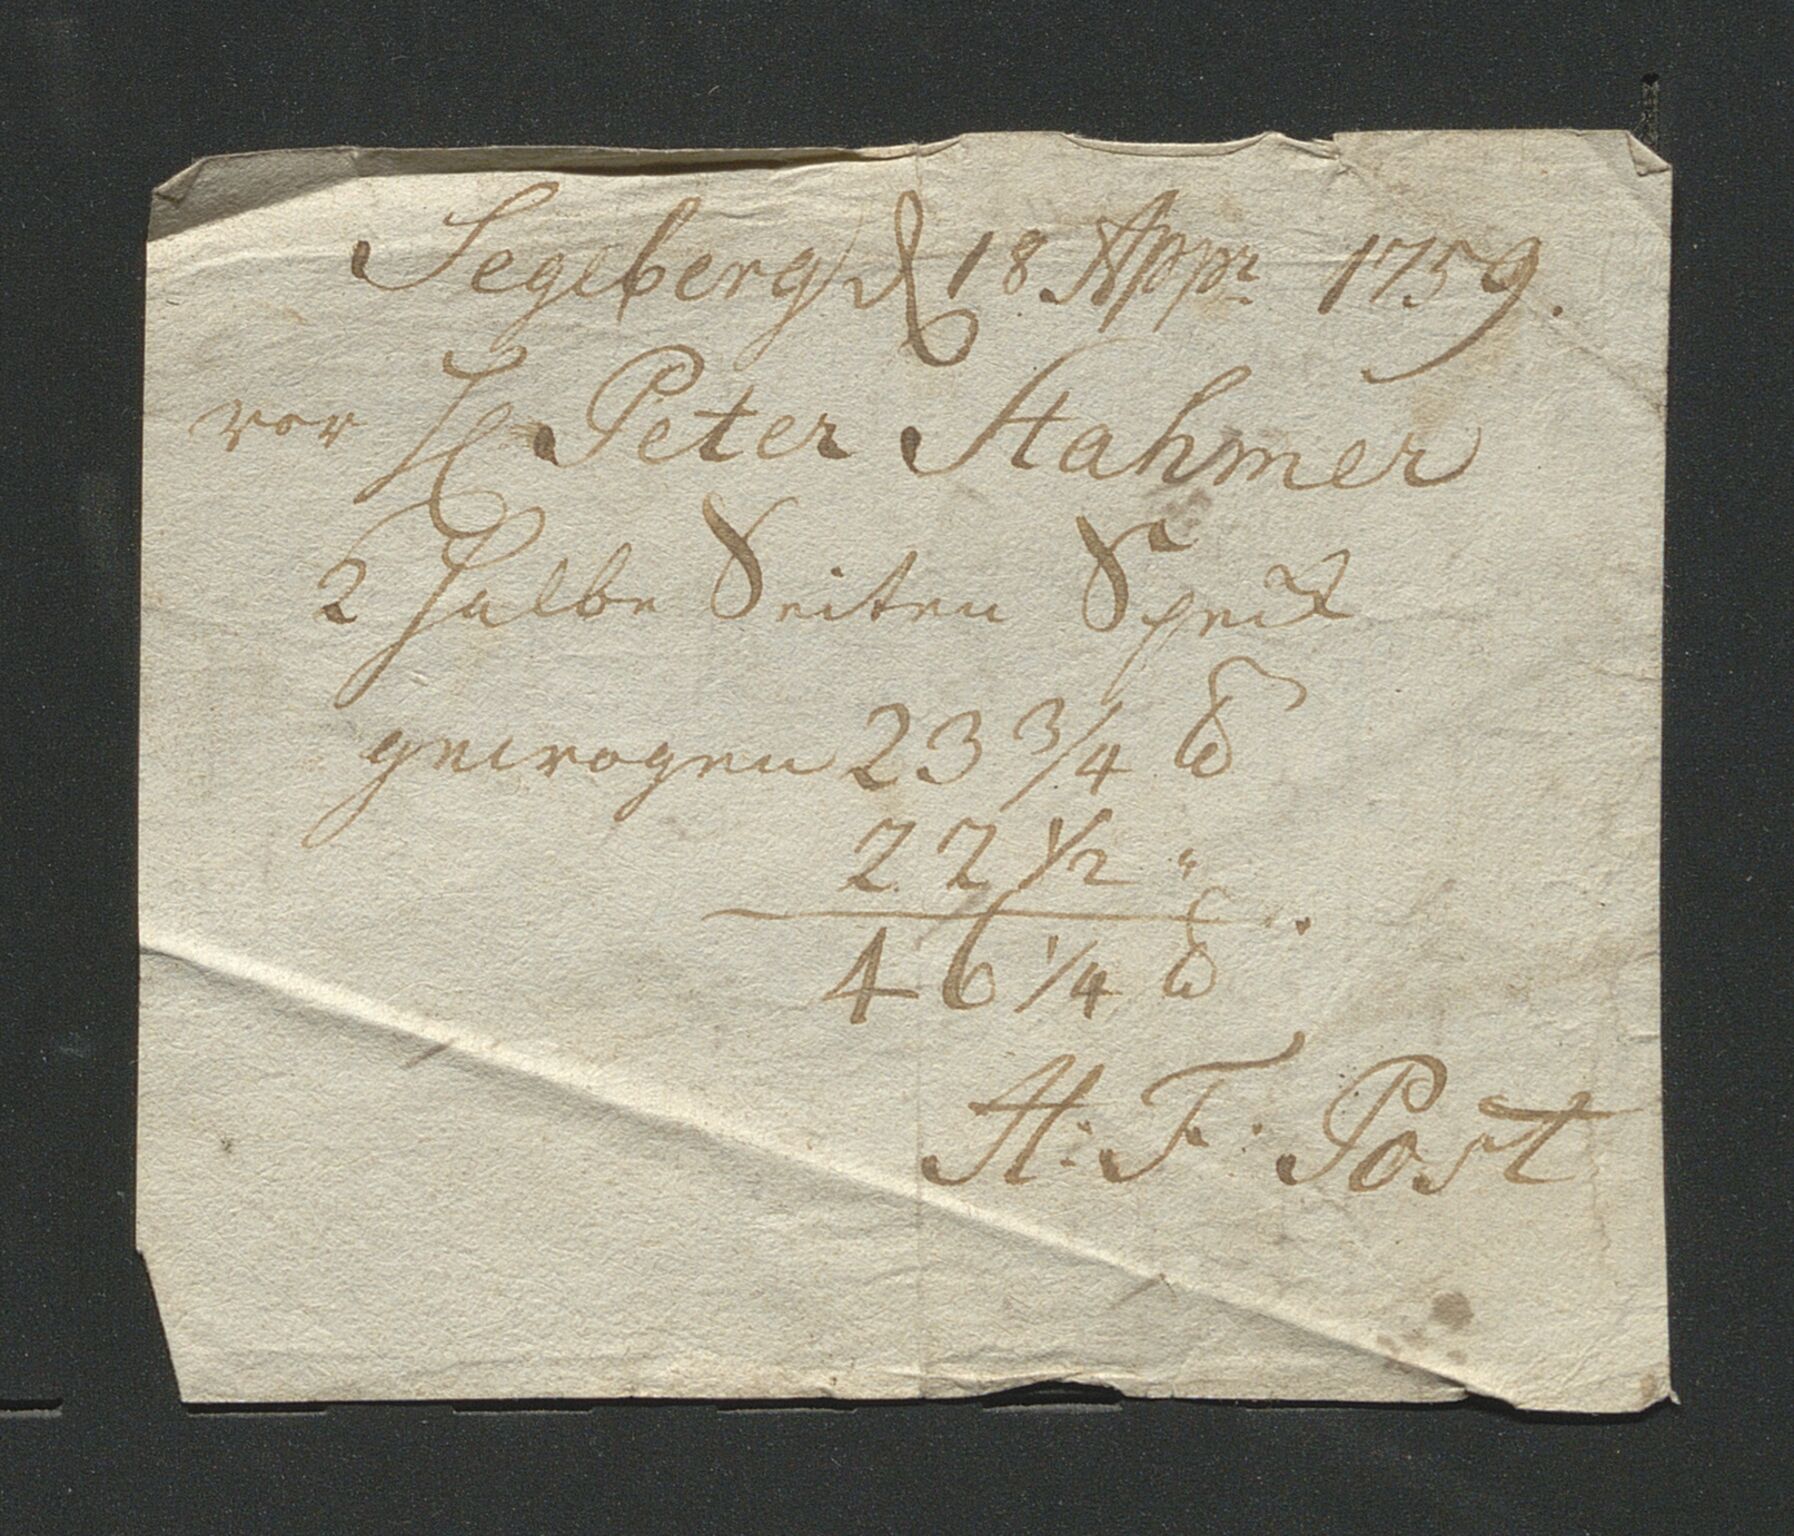 Segeberg d 18 Appr 1759.
vor H Peter Stahmer
2 halbe Seiten Speck
gewogen 23 3/4 ℔
22 1/2 "
46 1/4 ℔
H: F: Post